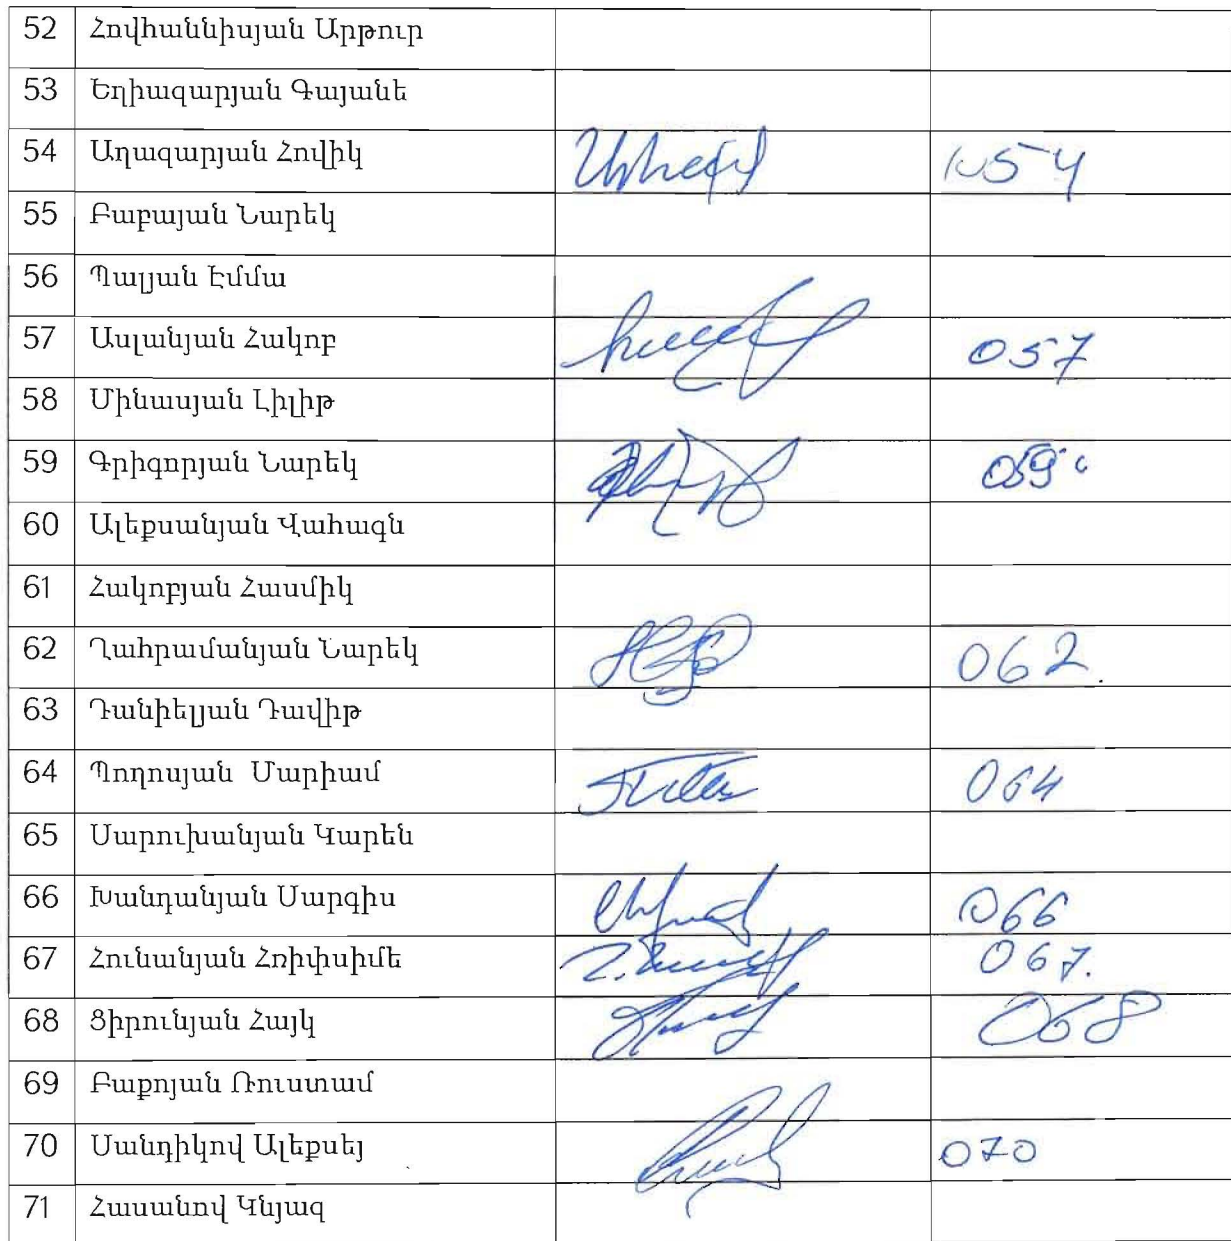 52 Հովհաննիսյան Արթուր
53 Եղիազարյան Գայանե
54 Աղազարյան Հովիկ 054
55 Բաբայան Նարեկ
56 Պալյան Էմմա
57 Ասլանյան Հակոբ 057
58 Մինասյան Լիլիթ
59 Գրիգորյան Նարեկ 059
60 Ալեքսանյան Վահագն
61 Հակոբյան Հասմիկ
62 Ղահրամանյան Նարեկ 062.
63 Դանիելյան Դավիթ
64 Պողոսյան Մարիամ 064
65 Սարուխանյան Կարեն
66 Խանդանյան Սարգիս 066
67 Հունանյան Հռիփսիմե 067.
68 Ցիրունյան Հայկ 068
69 Բաքոյան Ռուստամ
70 Սանդիկով Ալեքսեյ 070
71 Հասանով Կնյազ